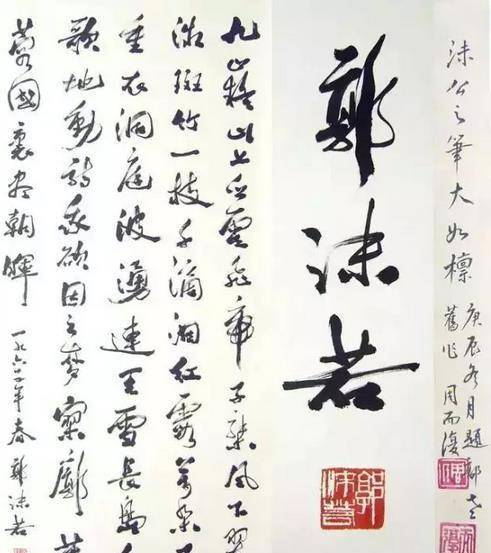 沫公之筆大如檁
庚辰冬月題郭老
舊作 周而復
郭沫若
郭沫若
九嶷山上白雲飛帝子乘風下翠
微斑竹一枝千滴淚紅霞萬朵
重衣洞庭波湧連天雪長島人
歌地動詩我欲因之夢寥廓芙
蓉國裏盡朝暉 一九六二年春 郭沫若